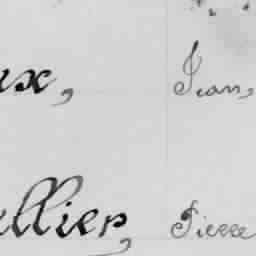 ux, Jean,
ellier, Pierre